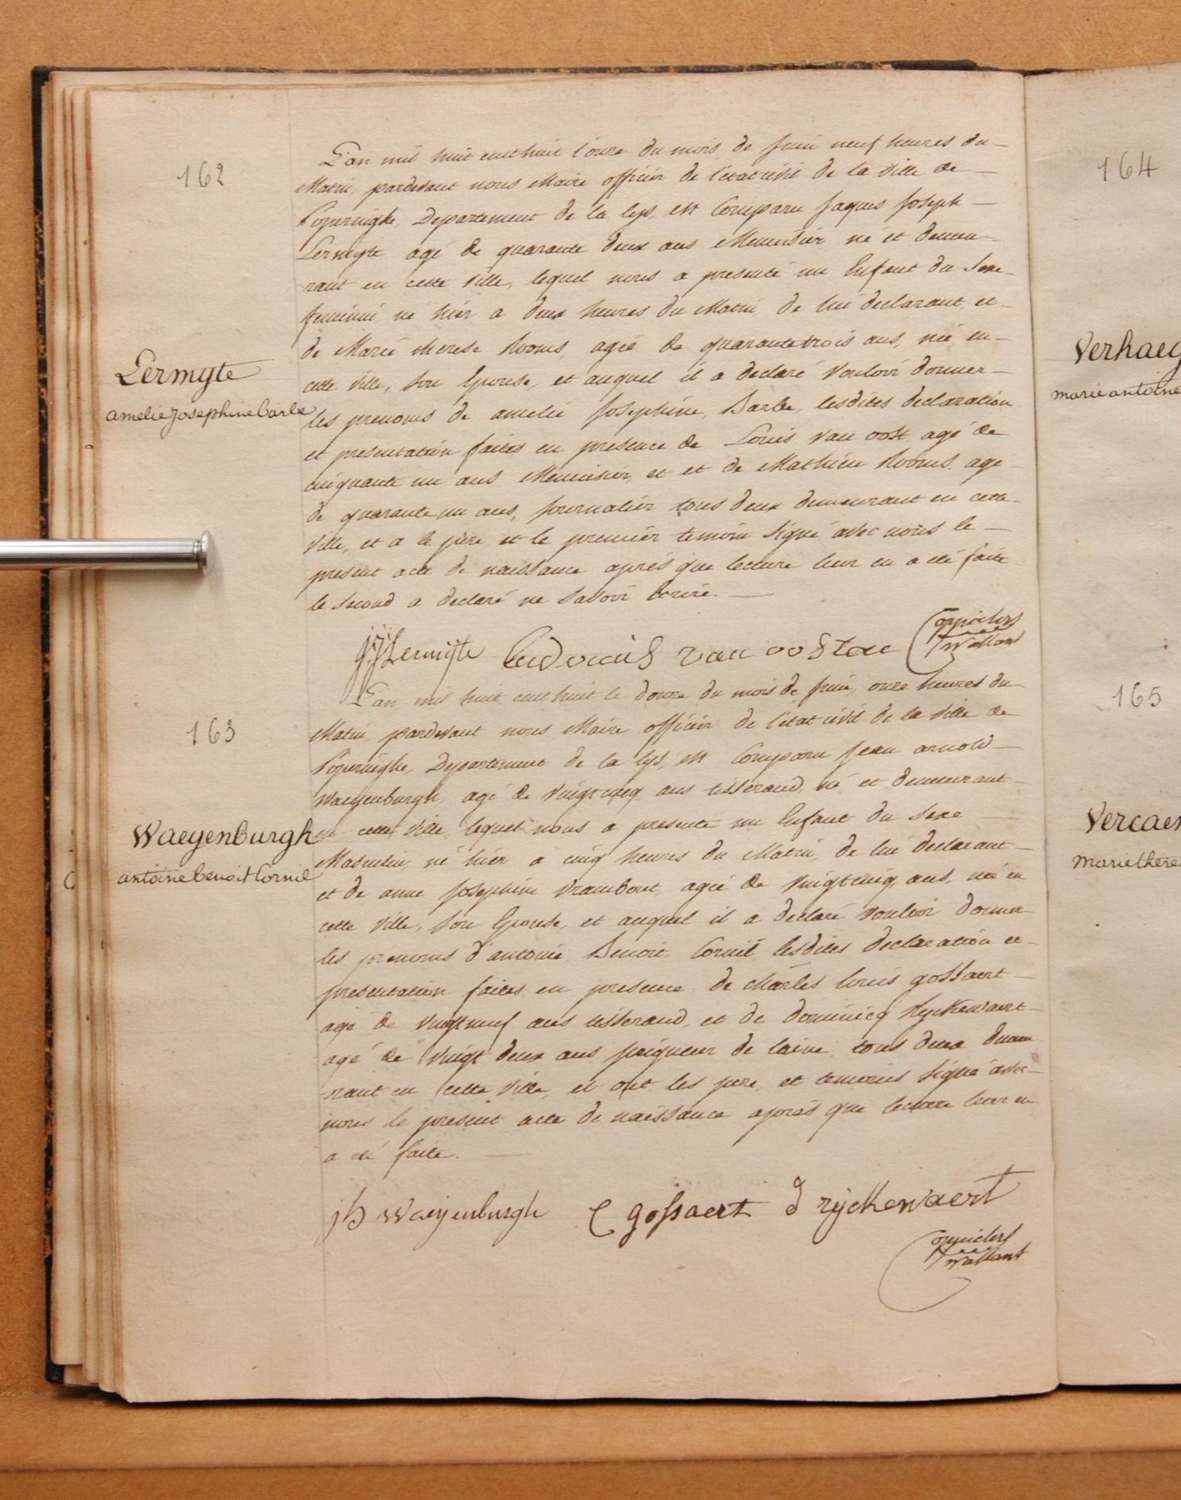 162
L'an mil huit cent huit l'onze du mois de juin neuf heures du
Matin pardevant nous Maire officier de l'etat civil de la ville de
Poperinghe, Departement de la Lys, est Comparu Jaques Joseph
Lermyte agé de quarante deux ans Menuisier né et demeu
rant en cette ville, lequel nous a presenté un Enfant du Sexe
feminin né hier a deux heures du Matin de lui declarant et
de Marie therese Rooms, agée de quarante trois ans, née en
cette ville, Son Epouse, et auquel il a declaré vouloir donner
les prenoms de amelie Josephine, Barbe, lesdites declaration
et presentation faites en presence de Louis van oost agé de
cinquante un ans Menuisier, et et de Mathieu Rooms, agé
de quarante un ans, journalier tous deux demeurant en cette
ville, et a le père et le premier temoin signé avec nous le
present acte de naissance après que lecture leur en a été faite
le second a declaré ne Savoir écrire.
Lermyte
amelie Josephine barbe
JJ Lermyte Ludovicus van oosten
163
L'an mil huit cent huit le douze du mois de juin, onze heures du
Matin, pardevant nous Maire officier de l'etat civil de la ville de
Poperinghe, Departement de la Lys, est Comparu Jean arnold
Waeyenburgh, agé de vingt cinq ans tisserand, né et demeurant
en cette ville, lequel nous a presenté un Enfant du Sexe
Masculin né hier a cinq heures du Matin, de lui declarant
et de anne Josephine Vrambout, agée de vingt cinq ans, née en
cette ville, Son Epouse, et auquel il a declaré vouloir donner
les prenoms d'antoine Benoit Cornil, lesdites declaration et
presentation faites en presence de Charles Louis gossaert
agé de vingt neuf ans tisserand, et de dominicq Ryckewaert
agé de vingt deux ans peigneur de laine, tous deux demeu
rant en cette ville, et ont les père, et temoins Signé avec
nous le present acte de naissance après que lecture leur en
a été faite.
Waeyenburgh
antoine benoit Cornil
Waeyenburgh C gossaert d ryckewaert
164
Verhaeg
marie antoine
165
Vercaem
Marie there